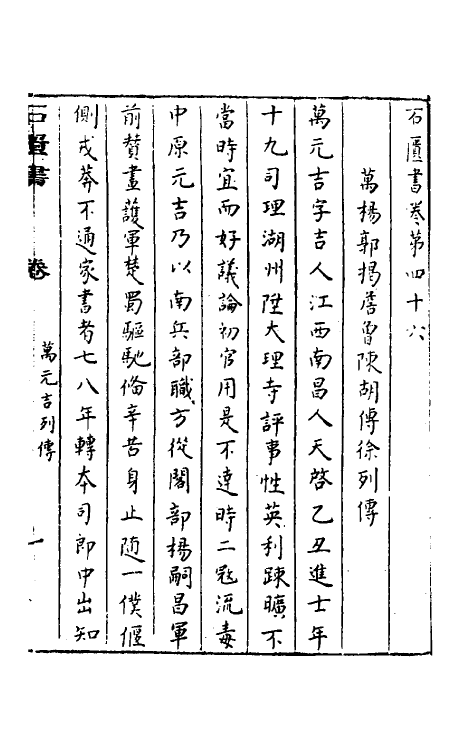 石匱書卷第四十六
萬楊郭揭詹曾陳胡傅徐列傳
萬元吉字吉人江西南昌人天啓乙丑進士年
十九司理湖州陞大理寺評事性英利踈曠不
當時宜而好議論初官用是不達時二冦流毒
中原元吉乃以南兵部職方從閣部楊嗣昌軍
前贊畫護軍楚蜀驅馳俻辛苦身止随一僕偃
側戎莽不通家書者七八年轉本司郎中出知
石匱書 卷
萬元吉列傳
一